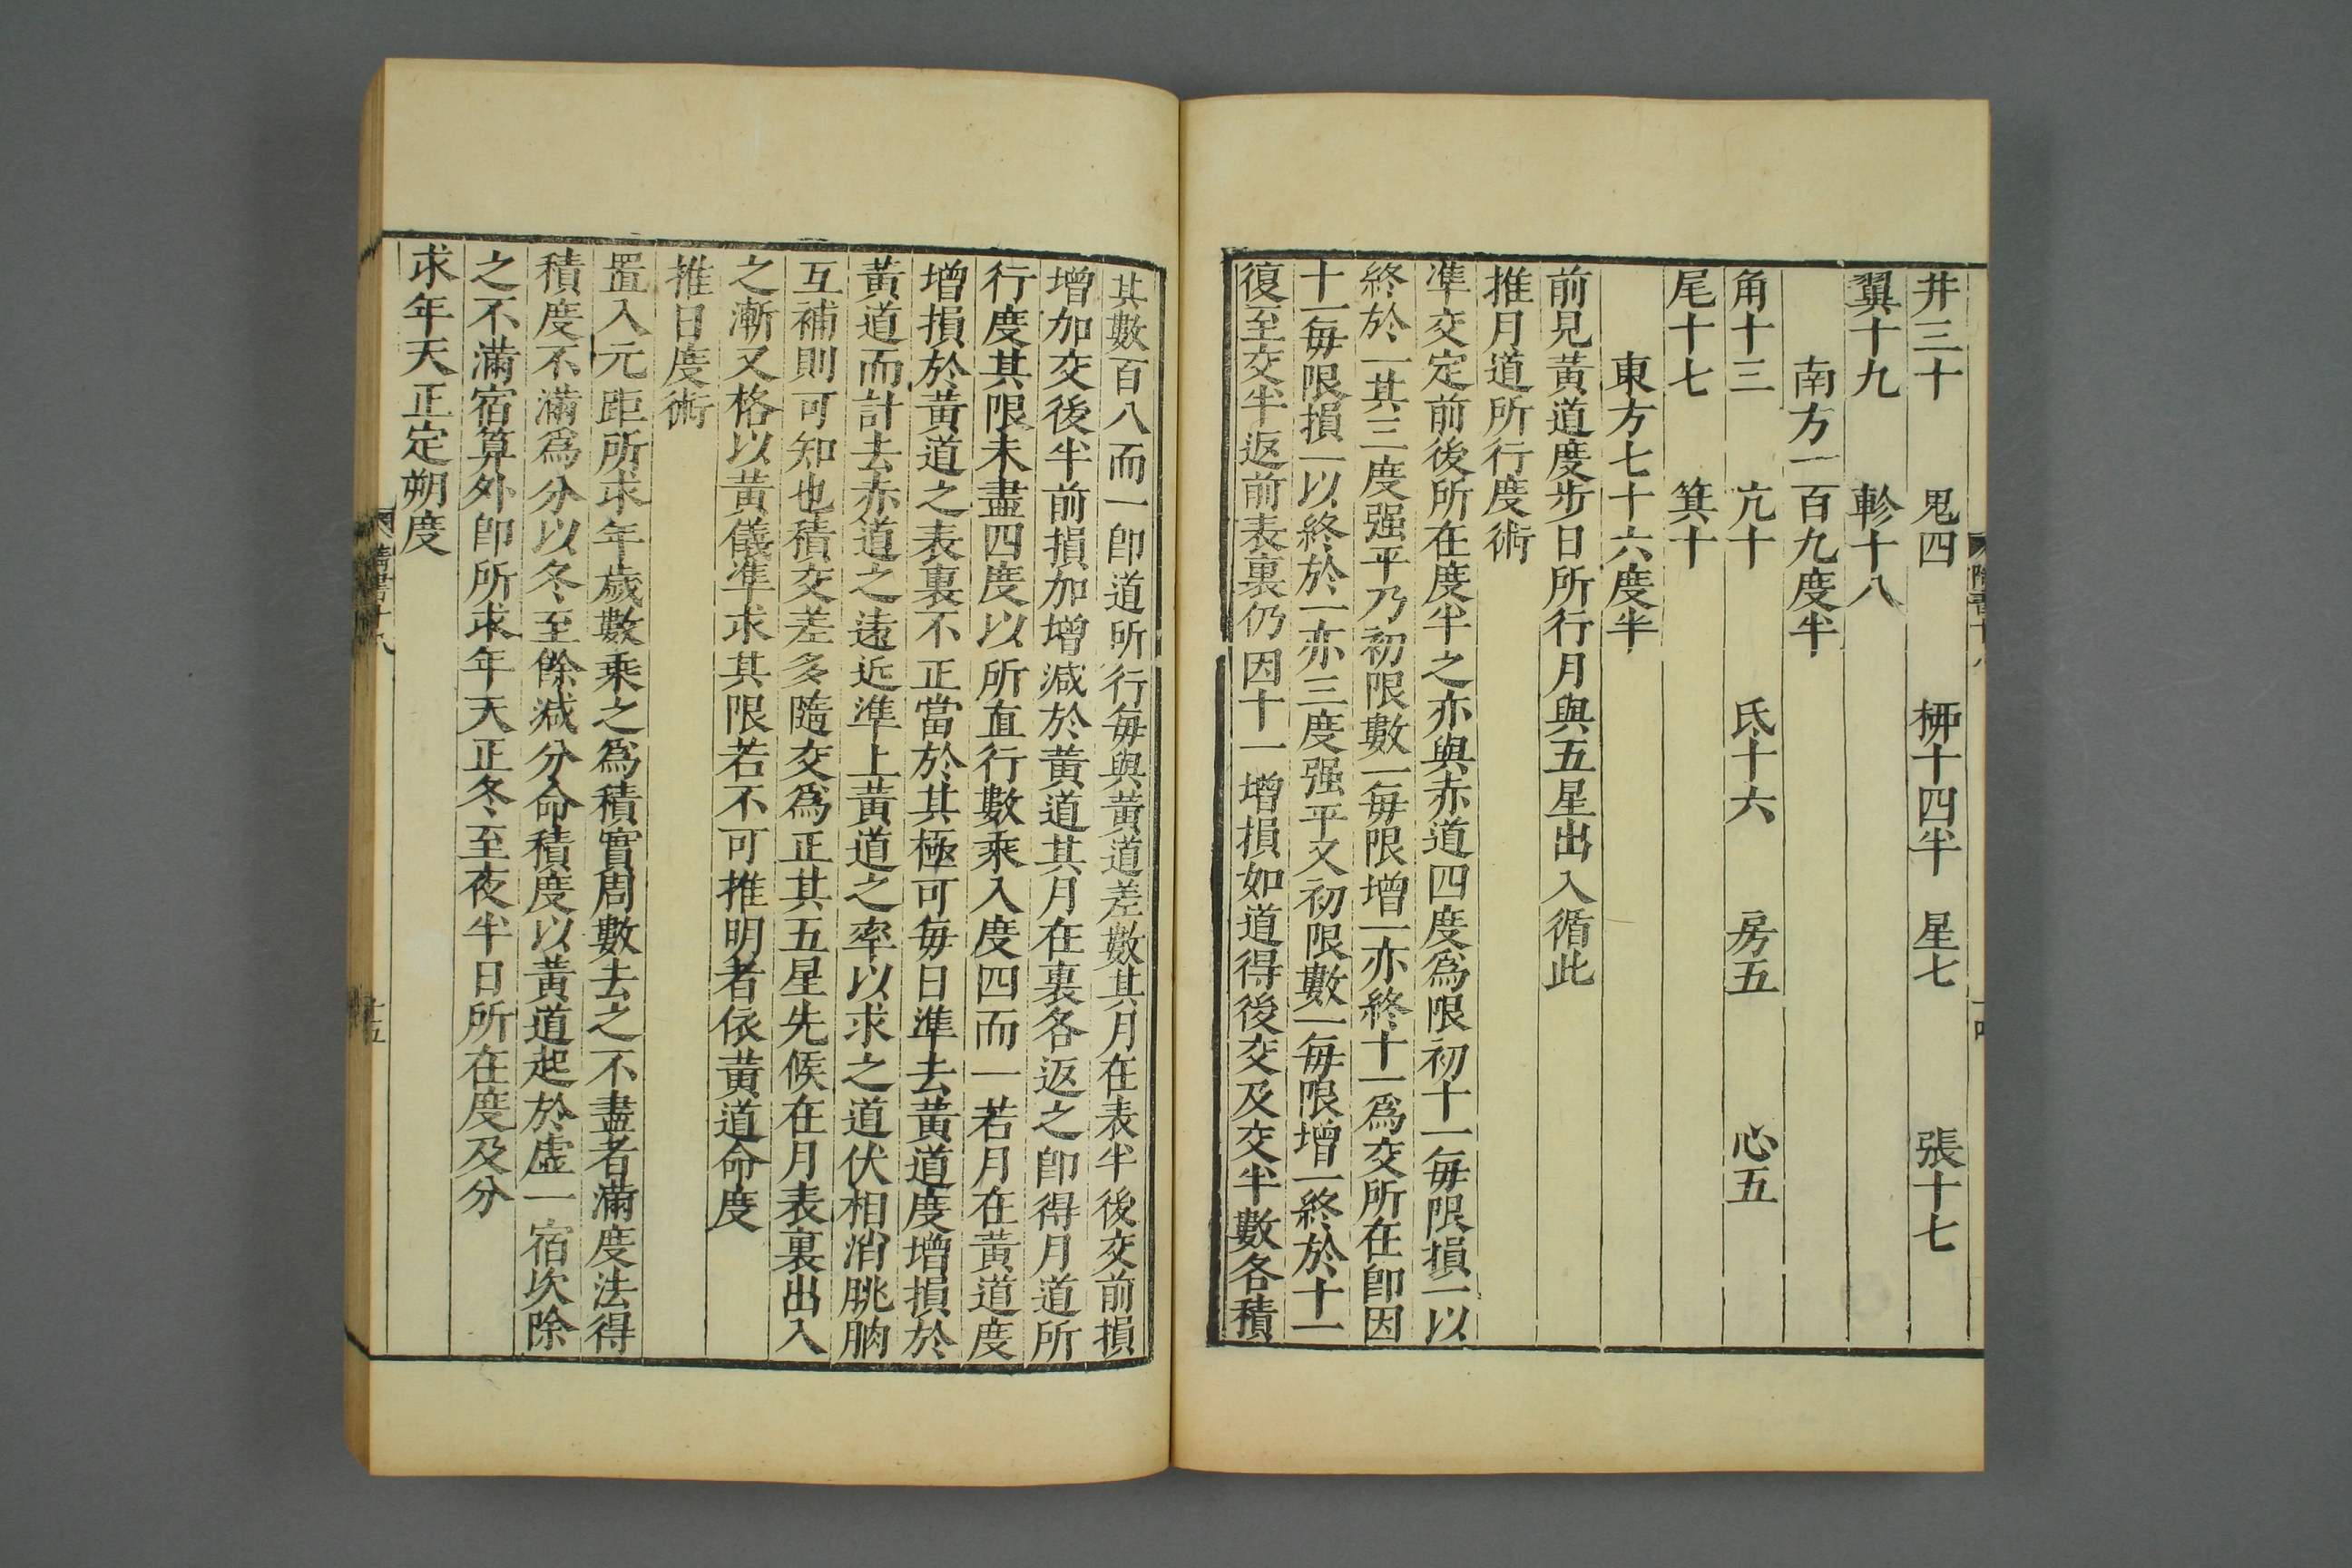 井三十 鬼四 柳十四半 星七 張十七
翼十九 軫十八
南方一百九度半
角十三 亢十 氐十六 房五 心五
尾十七 箕十
東方七十六度半
前見黃道度步日所行月與五星出入循此
推月道所行度術
準交定前後所在度半之亦與赤道四度爲限初十一每限損一以
終於一其三度强平乃初限數一每限增一亦終十一爲交所在卽因
十一每限損一以終於一亦三度强平又初限數一每限增一終於十一
復至交半返前表裏仍因十一增損如道得後交及交半數各積
其數百八而一卽道所行每與黃道差數其月在表半後交前損
增加交後半前損加增減於黃道其月在裏各返之卽得月道所
行度其限未盡四度以所直行數乘入度四而一若月在黃道度
增損於黃道之表裏不正當於其極可每日準去黃道度增損於
黃道而計去赤道之遠近準上黃道之率以求之道伏相消朓朒
互補則可知也積交差多隨交爲正其五星先候在月表裏出入
之漸又格以黃儀準求其限若不可推明者依黃道命度
推日度術
置入元距所求年歲數乘之爲積實周數去之不盡者滿度法得
積度不滿爲分以冬至餘減分命積度以黃道起於虛一宿次除
之不滿宿算外卽所求年天正冬至夜半日所在度及分
求年天正定朔度
隋書十八
十五